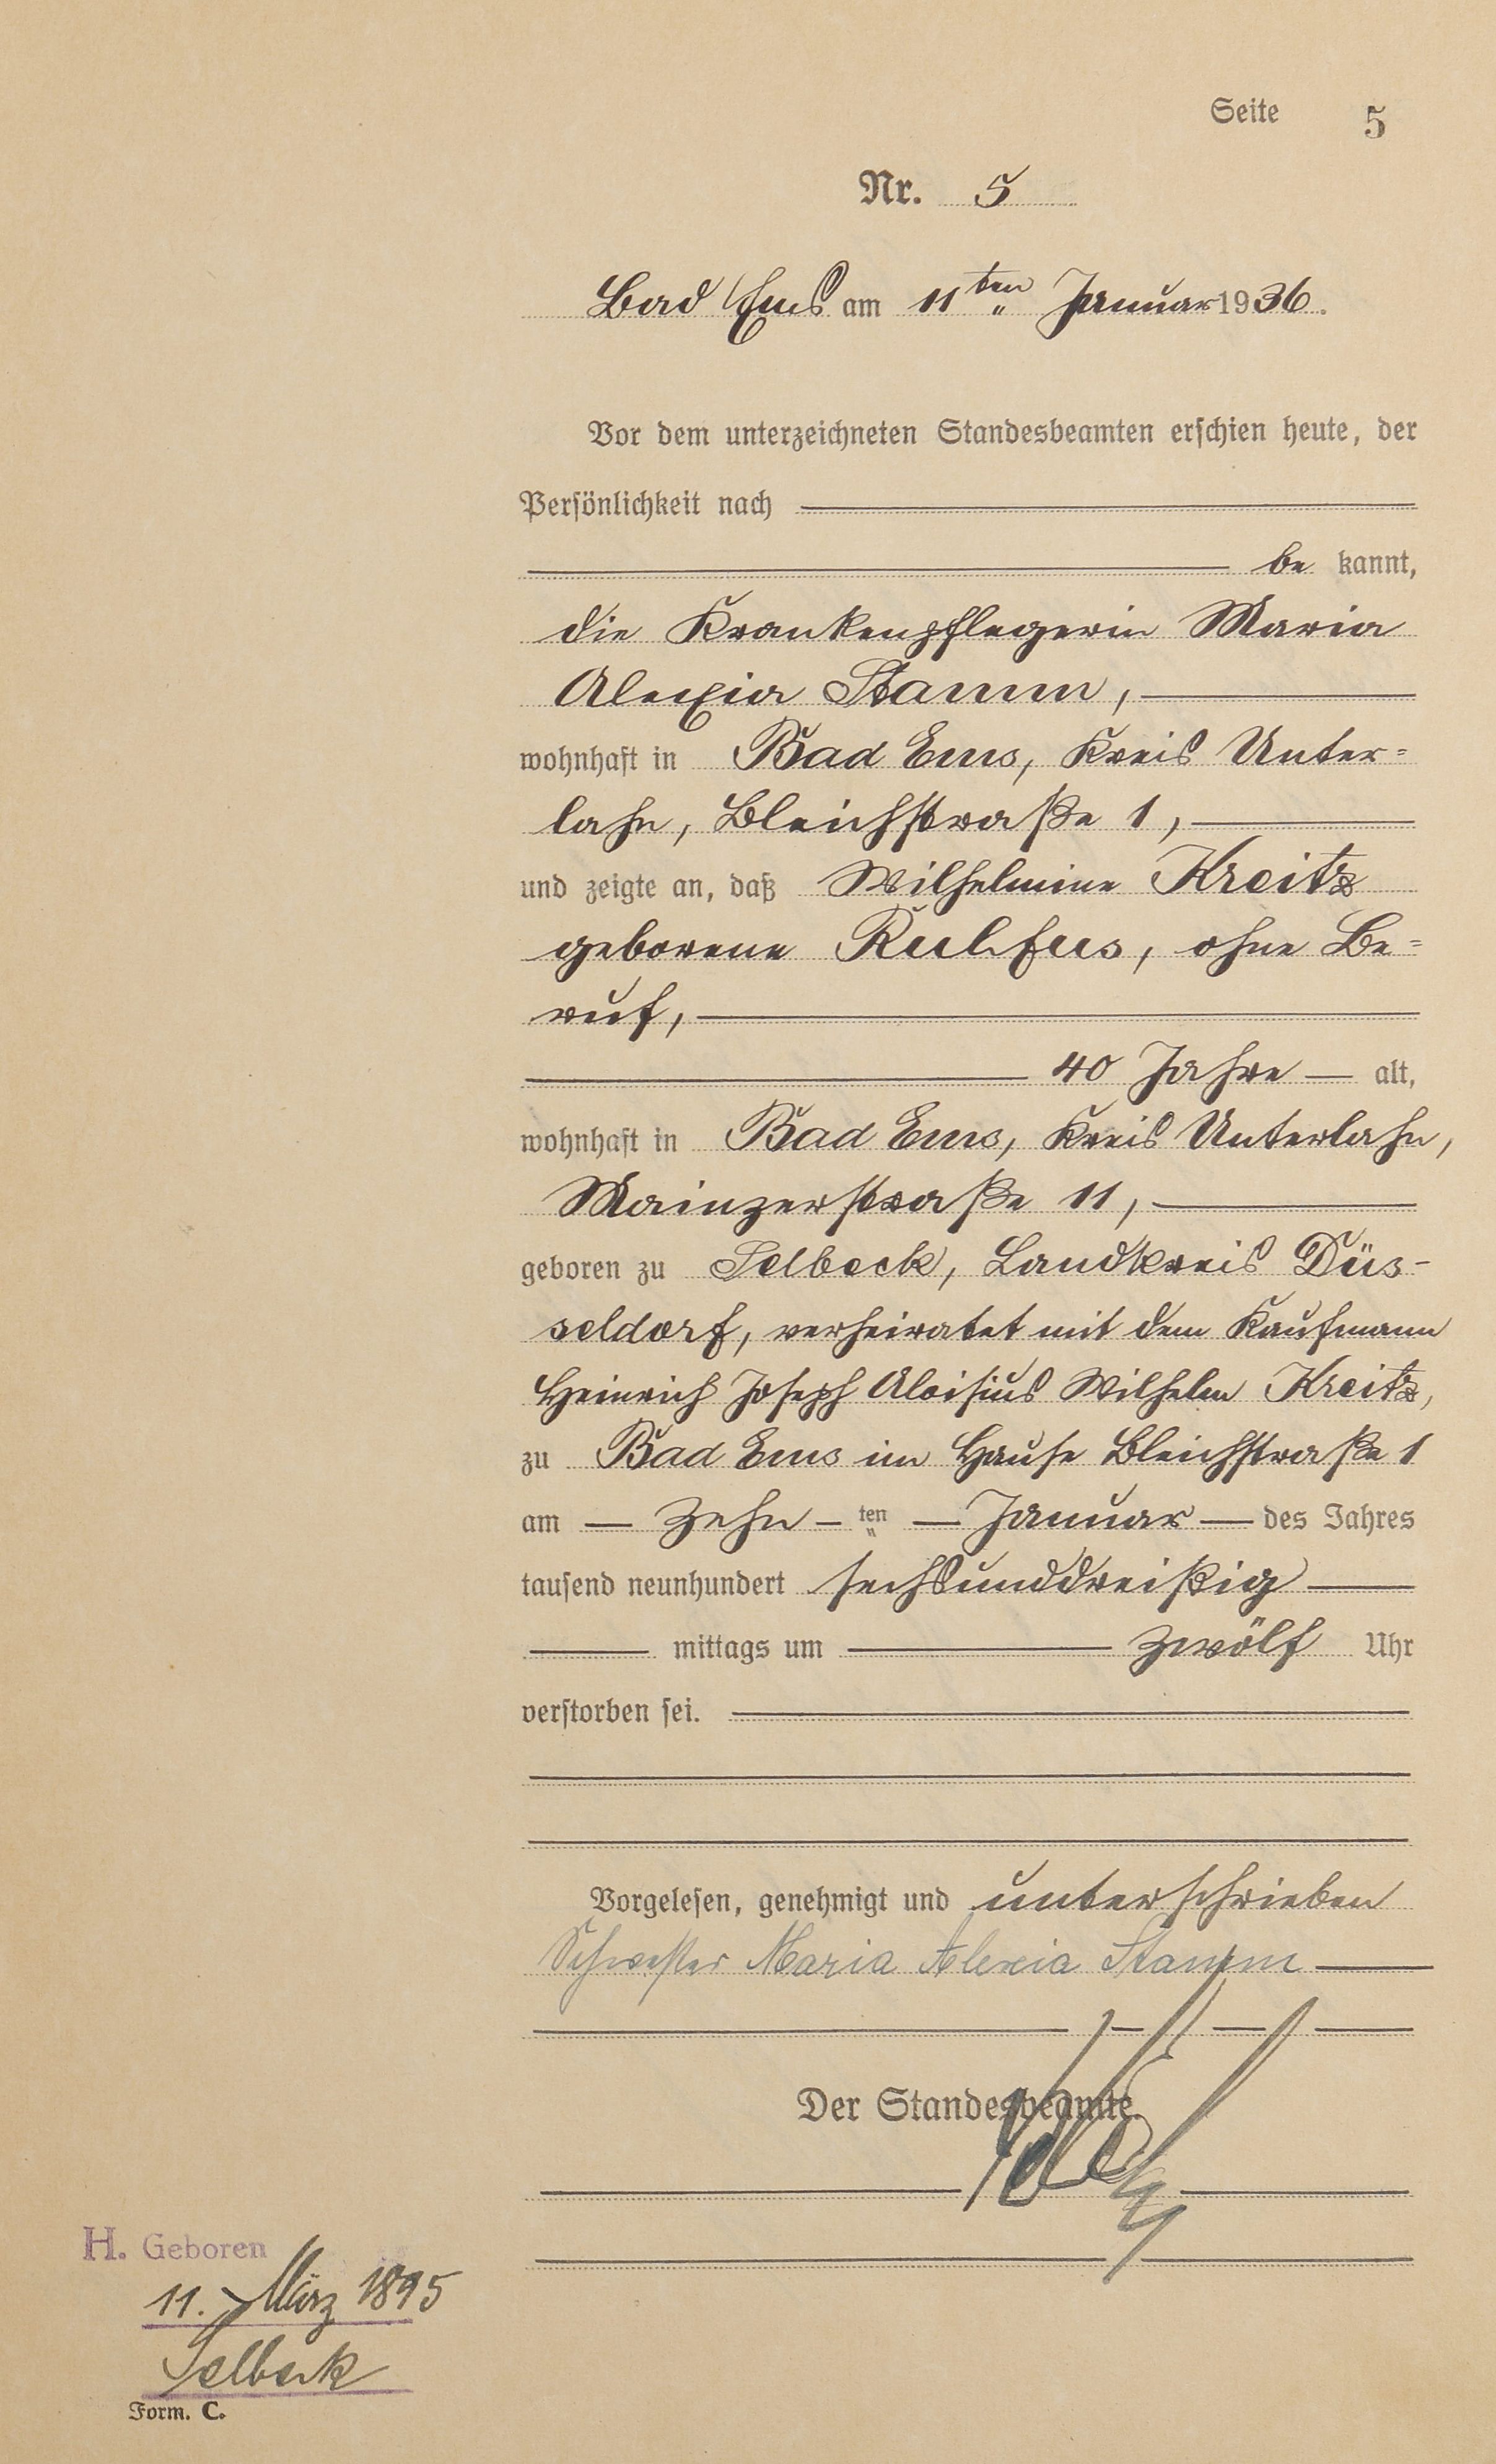 Seite 5
Nr. 5
Bad Ems am 11ten Januar 1936.
Vor dem unterzeichneten Standesbeamten erschien heute, der
Persönlichkeit nach
be kannt,
die Krankenpflegerin Maria
Alexia Stamm,
wohnhaft in Bad Ems, Kreis Unter=
lahn, Bleichstraße 1,
und zeigte an, daß Wilhelmine Kreitz
geborene Rulfus, ohne Be=
ruf,
40 Jahre alt,
wohnhaft in Bad Ems, Kreis Unterlahn,
Mainzerstraße 11,
geboren zu Selbeck, Landkreis Düs-
seldorf, verheiratet mit dem Kaufmann
Heinrich Joseph Aloisius Wilhelm Kreitz,
zu Bad Ems im Hause Bleichstraße 1
am zehn ten Januar des Jahres
tausend neunhundert sechsunddreißig
mittags um zwölf Uhr
verstorben sei.
Vorgelesen, genehmigt und unterschrieben
Schwester Maria Alexia Stamm
Der Standesbeamte.
H. Geboren
11. März 1895
Selbeck
Form. C.